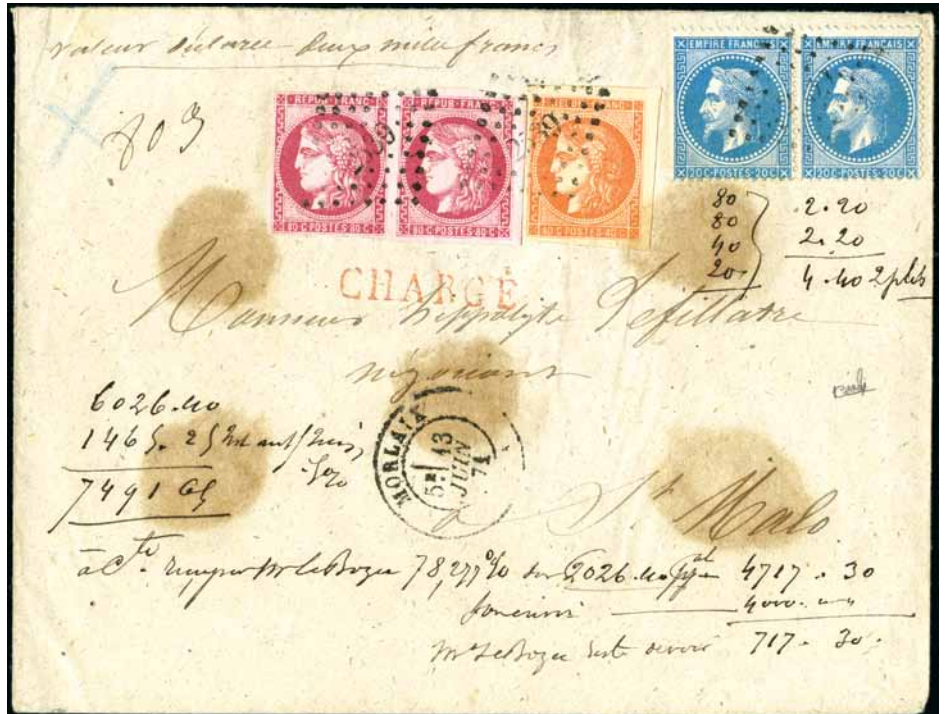 valeur déclarée deux mille francs
803
REPUB·FRANC·
80·C·POSTES·80·C
REPUB·FRANC·
80·C·POSTES·80·C
EMPIRE FRANÇAIS
20C·POSTES·20C
EMPIRE FRANÇAIS
20C·POSTES·20C
80
80
40
20
2.20
2.20
4.40 2 plis
CHARGÉ
Monsieur hippolyte Lefillatre
négociant
MORLAIX
5E 13
JUIN
71
à St Malo
6026.40
1465.25
7491 65
à Cte 78,277% sur 6026.40 4717.30
4000
Mr LeBozec reste devoir 717.30